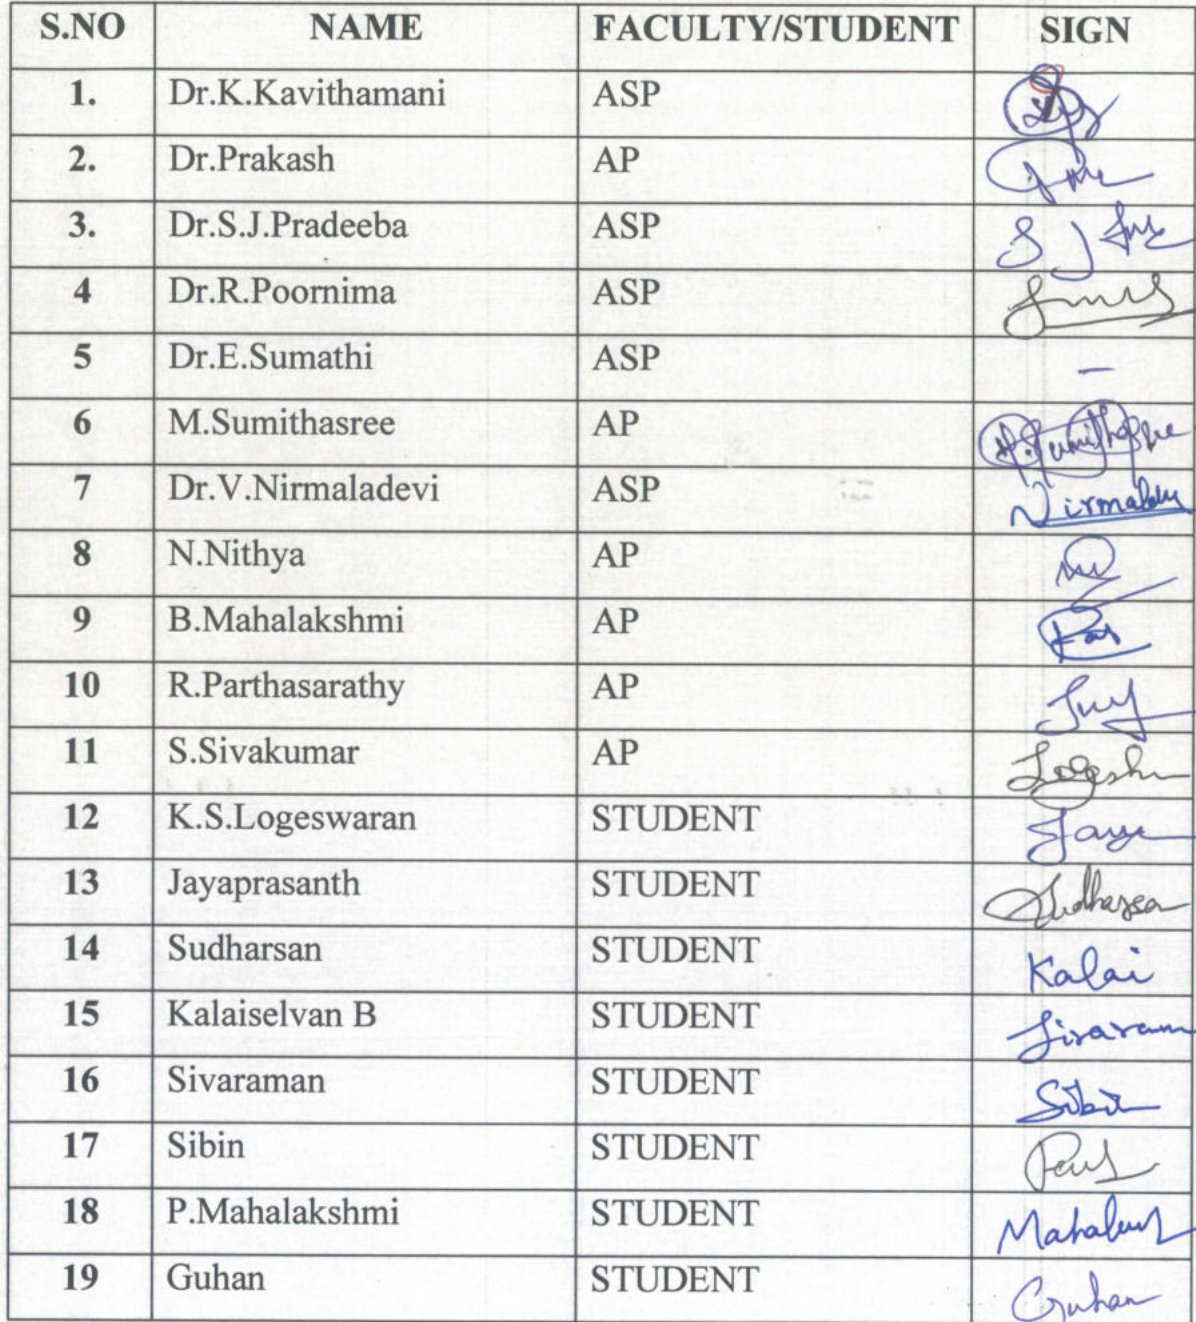 S.NO NAME FACULTY/STUDENT SIGN
1. Dr.K.Kavithamani ASP
2. Dr.Prakash AP
3. Dr.S.J.Pradeeba ASP
4 Dr.R.Poornima ASP
5 Dr.E.Sumathi ASP –
6 M.Sumithasree AP M.Sumithasree
7 Dr.V.Nirmaladevi ASP
8 N.Nithya AP
9 B.Mahalakshmi AP
10 R.Parthasarathy AP
11 S.Sivakumar AP
12 K.S.Logeswaran STUDENT
13 Jayaprasanth STUDENT
14 Sudharsan STUDENT Kalai
15 Kalaiselvan B STUDENT
16 Sivaraman STUDENT Sibin
17 Sibin STUDENT
18 P.Mahalakshmi STUDENT
19 Guhan STUDENT Guhan